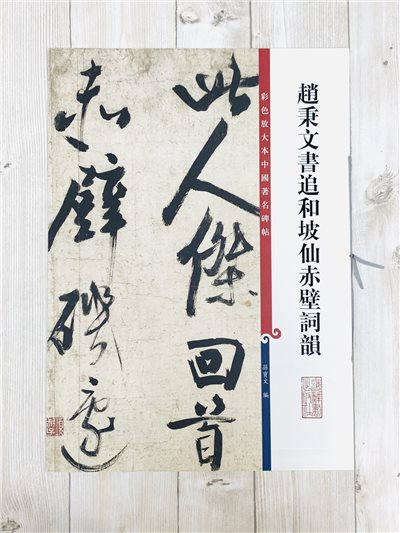 趙秉文書追和坡仙赤壁詞韻
彩色放大本中國著名碑帖
孫寶文 編
此人傑回首
赤壁磯邊